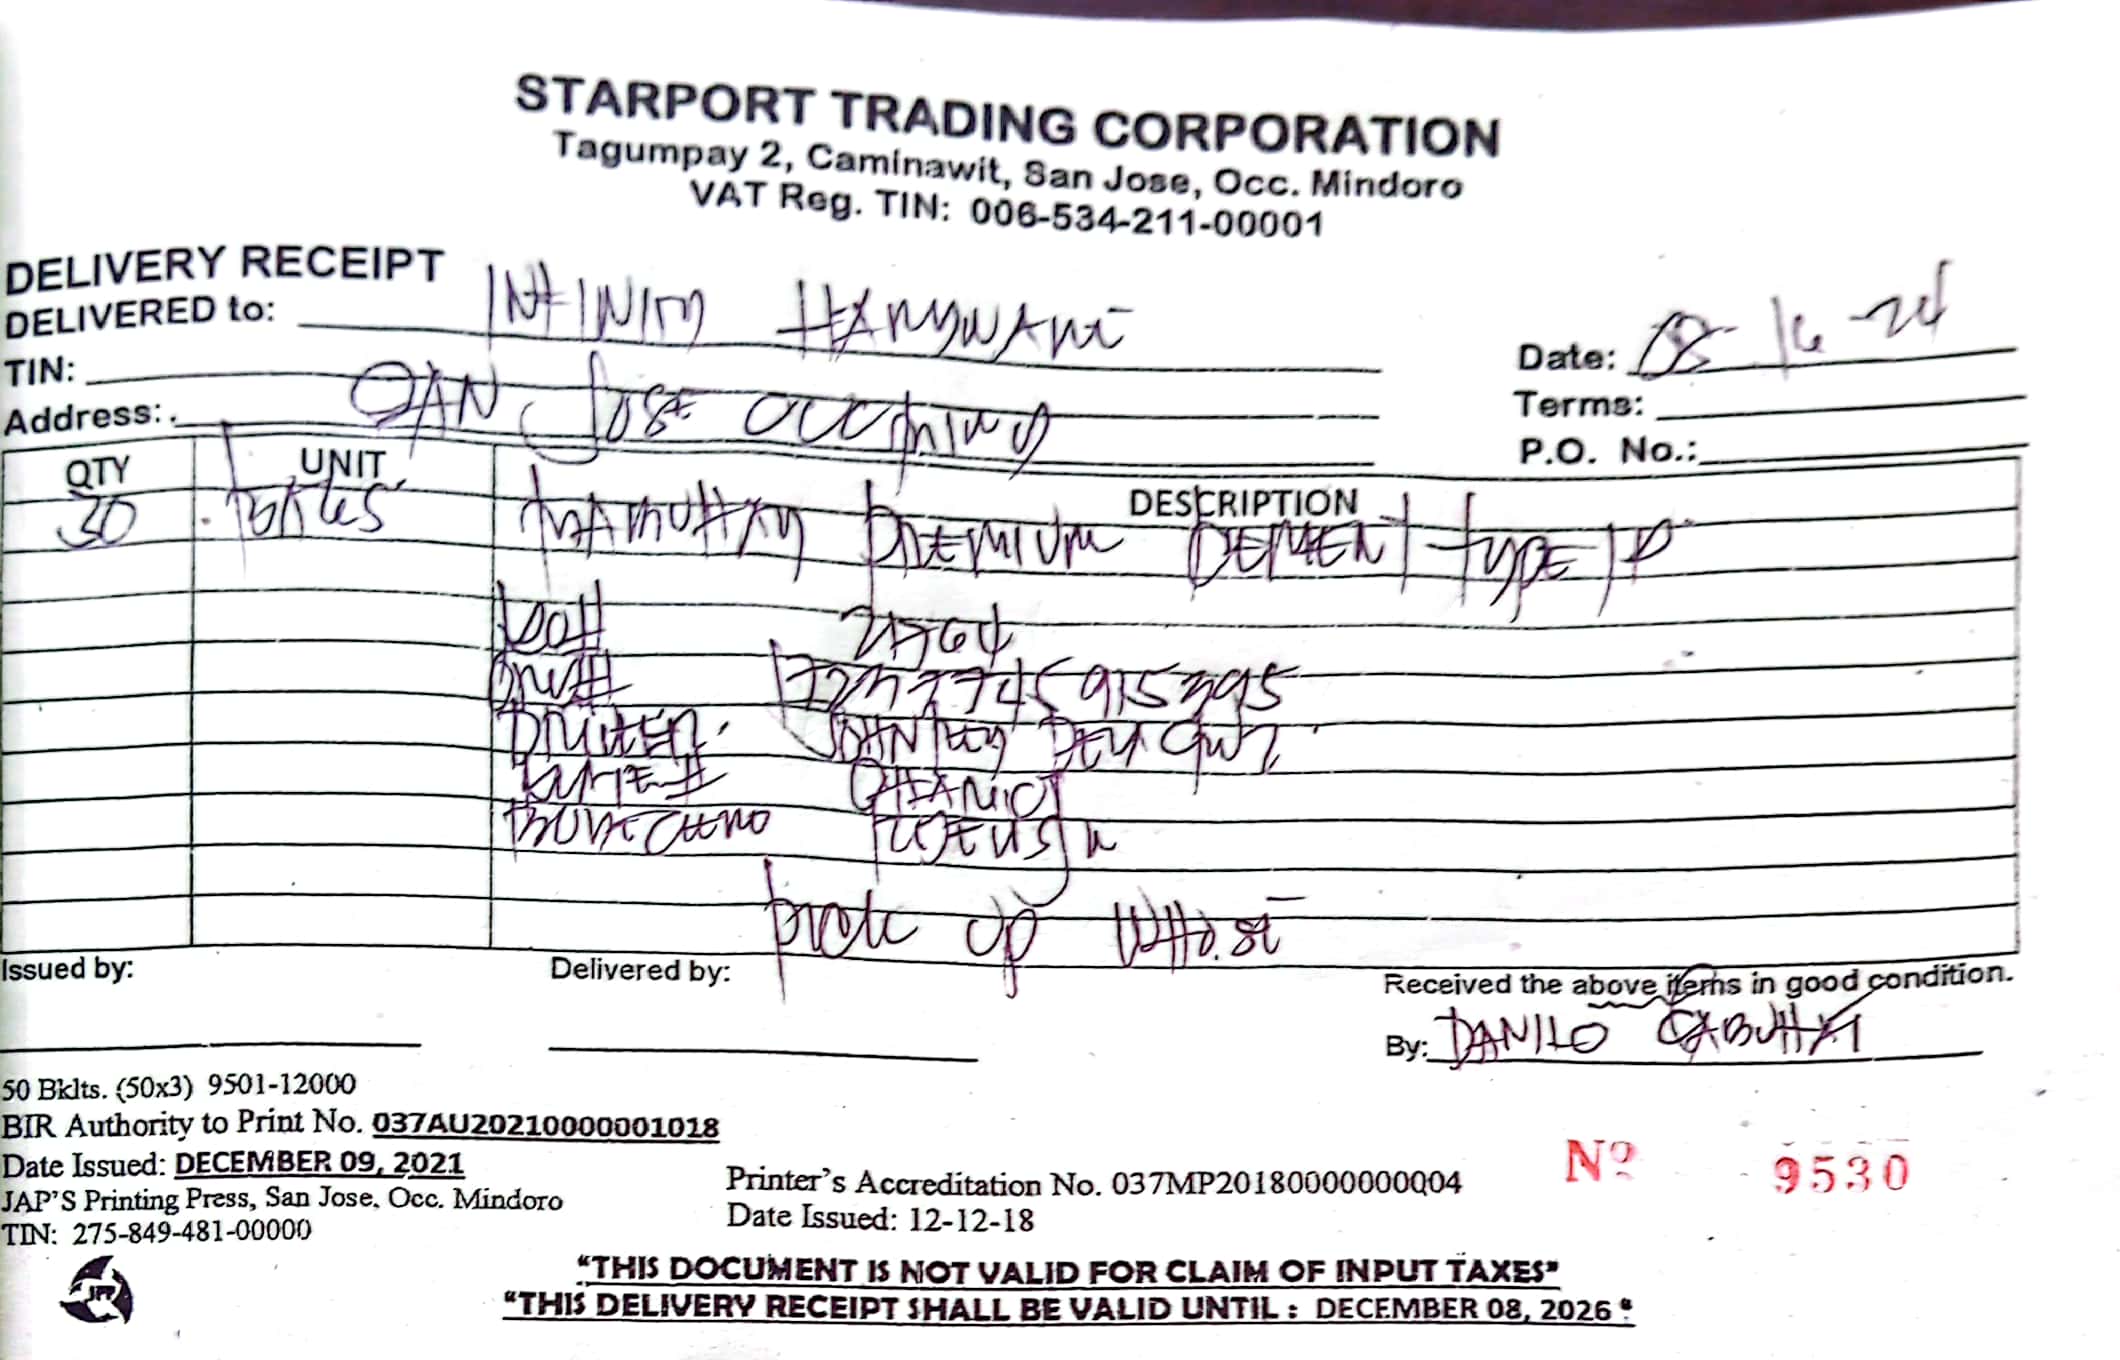 STARPORT TRADING CORPORATION
Tagumpay 2, Caminawit, San Jose, Occ. Mindoro
VAT Reg. TIN: 006-534-211-00001
DELIVERY RECEIPT
DELIVERED to: INFINITY HARDWARE
Date: 08-16-24
TIN:
Terms:
Address: SAN Jose OCC MINDO
P.O. No.:
QTY UNIT DESCRIPTION
30 PREMIUM CEMENT TYPE 1P
21764
17237745915395
DRIVER
PLATE # CHARIOT
pick up WHSE
Issued by:
Delivered by:
Received the above items in good condition.
By: DANILO
50 Bklts. (50x3) 9501-12000
BIR Authority to Print No. 037AU20210000001018
Date Issued: DECEMBER 09, 2021
JAP'S Printing Press, San Jose, Occ. Mindoro
TIN: 275-849-481-00000
Printer's Accreditation No. 037MP20180000000004
Date Issued: 12-12-18
Nº 9530
JPP
"THIS DOCUMENT IS NOT VALID FOR CLAIM OF INPUT TAXES"
"THIS DELIVERY RECEIPT SHALL BE VALID UNTIL : DECEMBER 08, 2026"